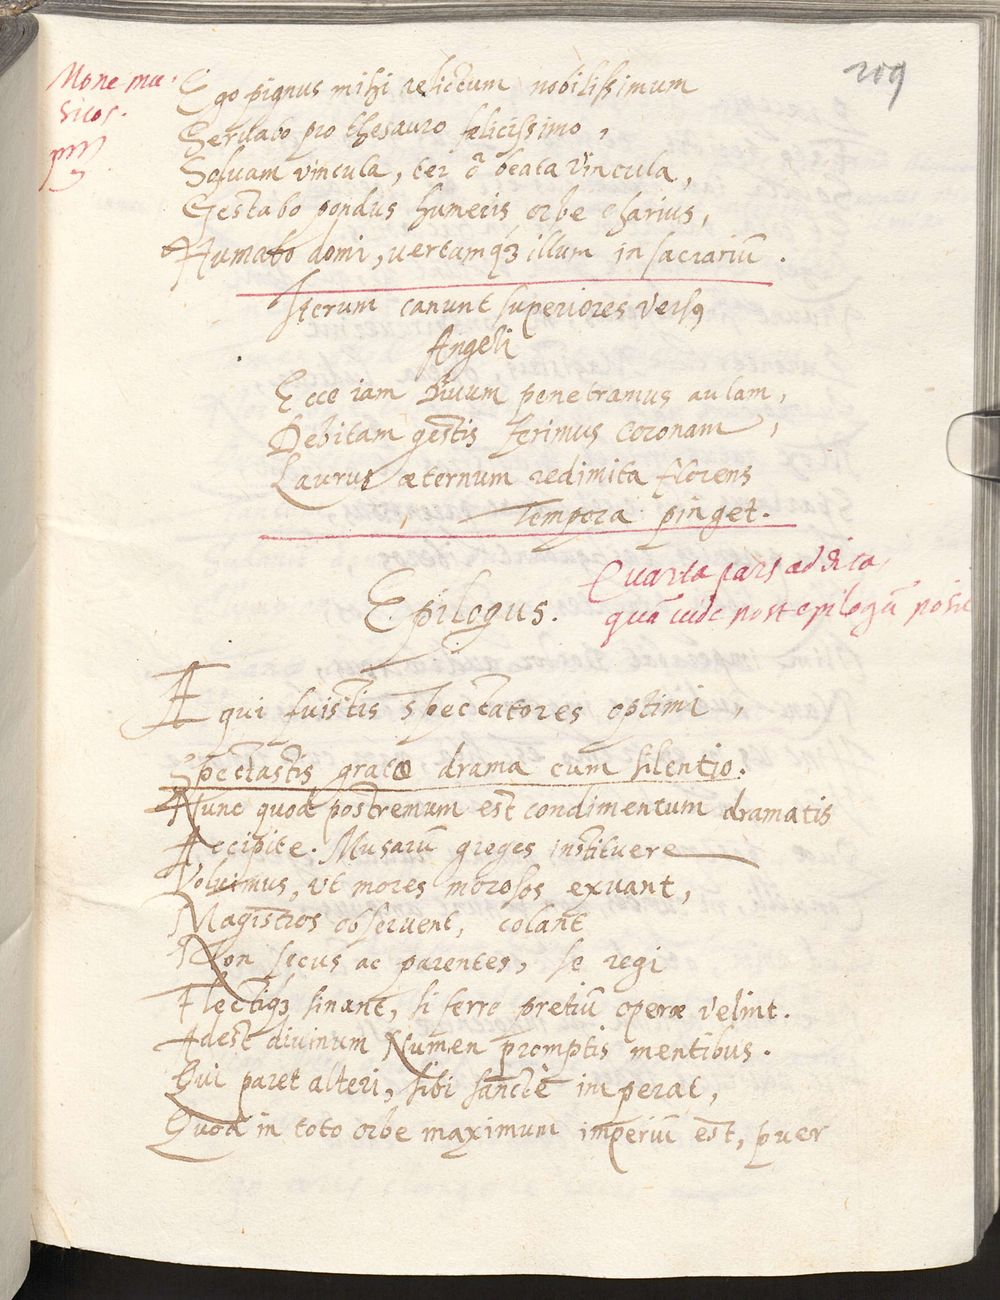 209
Mone mu
sicos.
Ego pignus mihi relictum nobilissimum
Servabo pro thesauro fælicissimo,
Solvam vincula, ter ô beata vincula,
Gestabo pondus humeris orbe charius,
Humabo domi, vertamq́ꝫ illum in sacrariū.
Iterum canunt superiores versꝰ
Angeli
Ecce iam Divum penetramus aulam,
Debitam gestis ferimus coronam,
Laurus æternum redimita florens
Tempora pinget.
Quarta pars addita,
quā vide post epilogū
Epilogus.
At qui fuistis spectatores optimi,
Spectastis grato drama cum silentio.
Nunc quod postremum est condimentum dramatis
Accipite. Musarū greges instituere
Voluimus, ut mores morosos exuant,
Magistros observent, colant
Non secus ac parentes, se regi
Flectiqꝫ sinant, si ferre pretiū operæ velint.
Adest divinum Numen promptis mentibus.
Qui paret alteri, sibi sanctè imperat,
Quod in toto orbe maximum imperiū est, puer